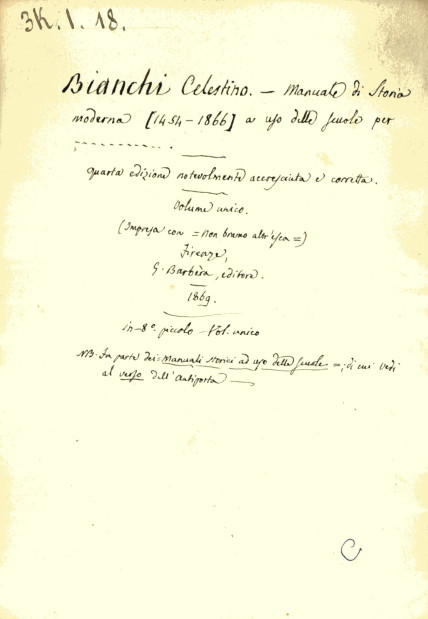 3K. I. 18.
Bianchi Celestino. — Manuale di Storia
moderna [1454–1866] a uso delle scuole per
- - - - - - - - - .
quarta edizione notevolmente accresciuta e corretta.
Volume unico.
(Impresa con = non bramo altr'esca =)
Firenze,
G. Barbèra, editore.
1869.
in-8º. piccolo – Vol. unico
NB. Fa parte dei = Manuali storici ad uso delle scuole =, di cui vedi
al verso dell'Antiporta —
C